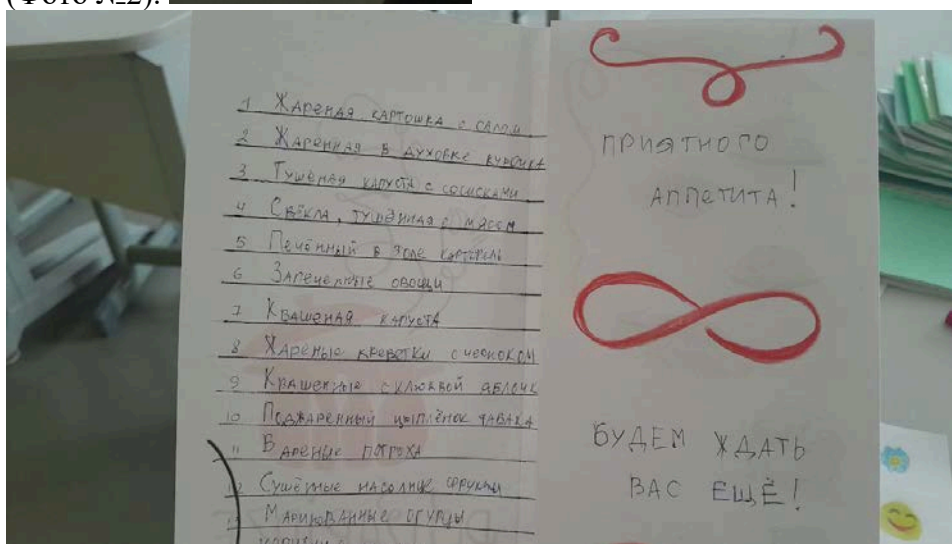 (Фото №2).
1 Жареная картошка с салом
2 Жаренная в духовке курочка
3 Тушёная капуста с сосисками
4 Свёкла, тушённая с мясом
5 Печённый в золе картофель
6 Запеченные овощи
7 Квашеная капуста
8 Жареные креветки с чесноком
9 Квашенные с клюквой яблоки
10 Поджаренный цыплёнок табака
11 Вареные потроха
12 Сушёные на солнце фрукты
13 Маринованные огурцы
ПРИЯТНОГО
АППЕТИТА!
БУДЕМ ЖДАТЬ
ВАС ЕЩЁ!